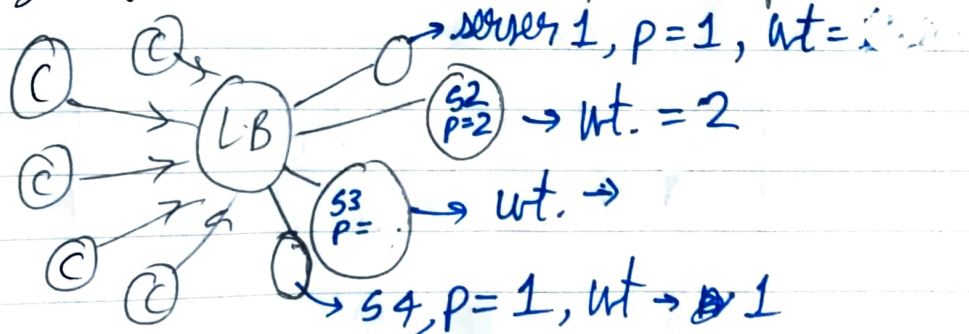 C
C
C
C
C
L.B
server 1, p=1, wt=
S2
p=2
→ wt. = 2
S3
p=
→ wt. →
S4, p=1, wt → 1